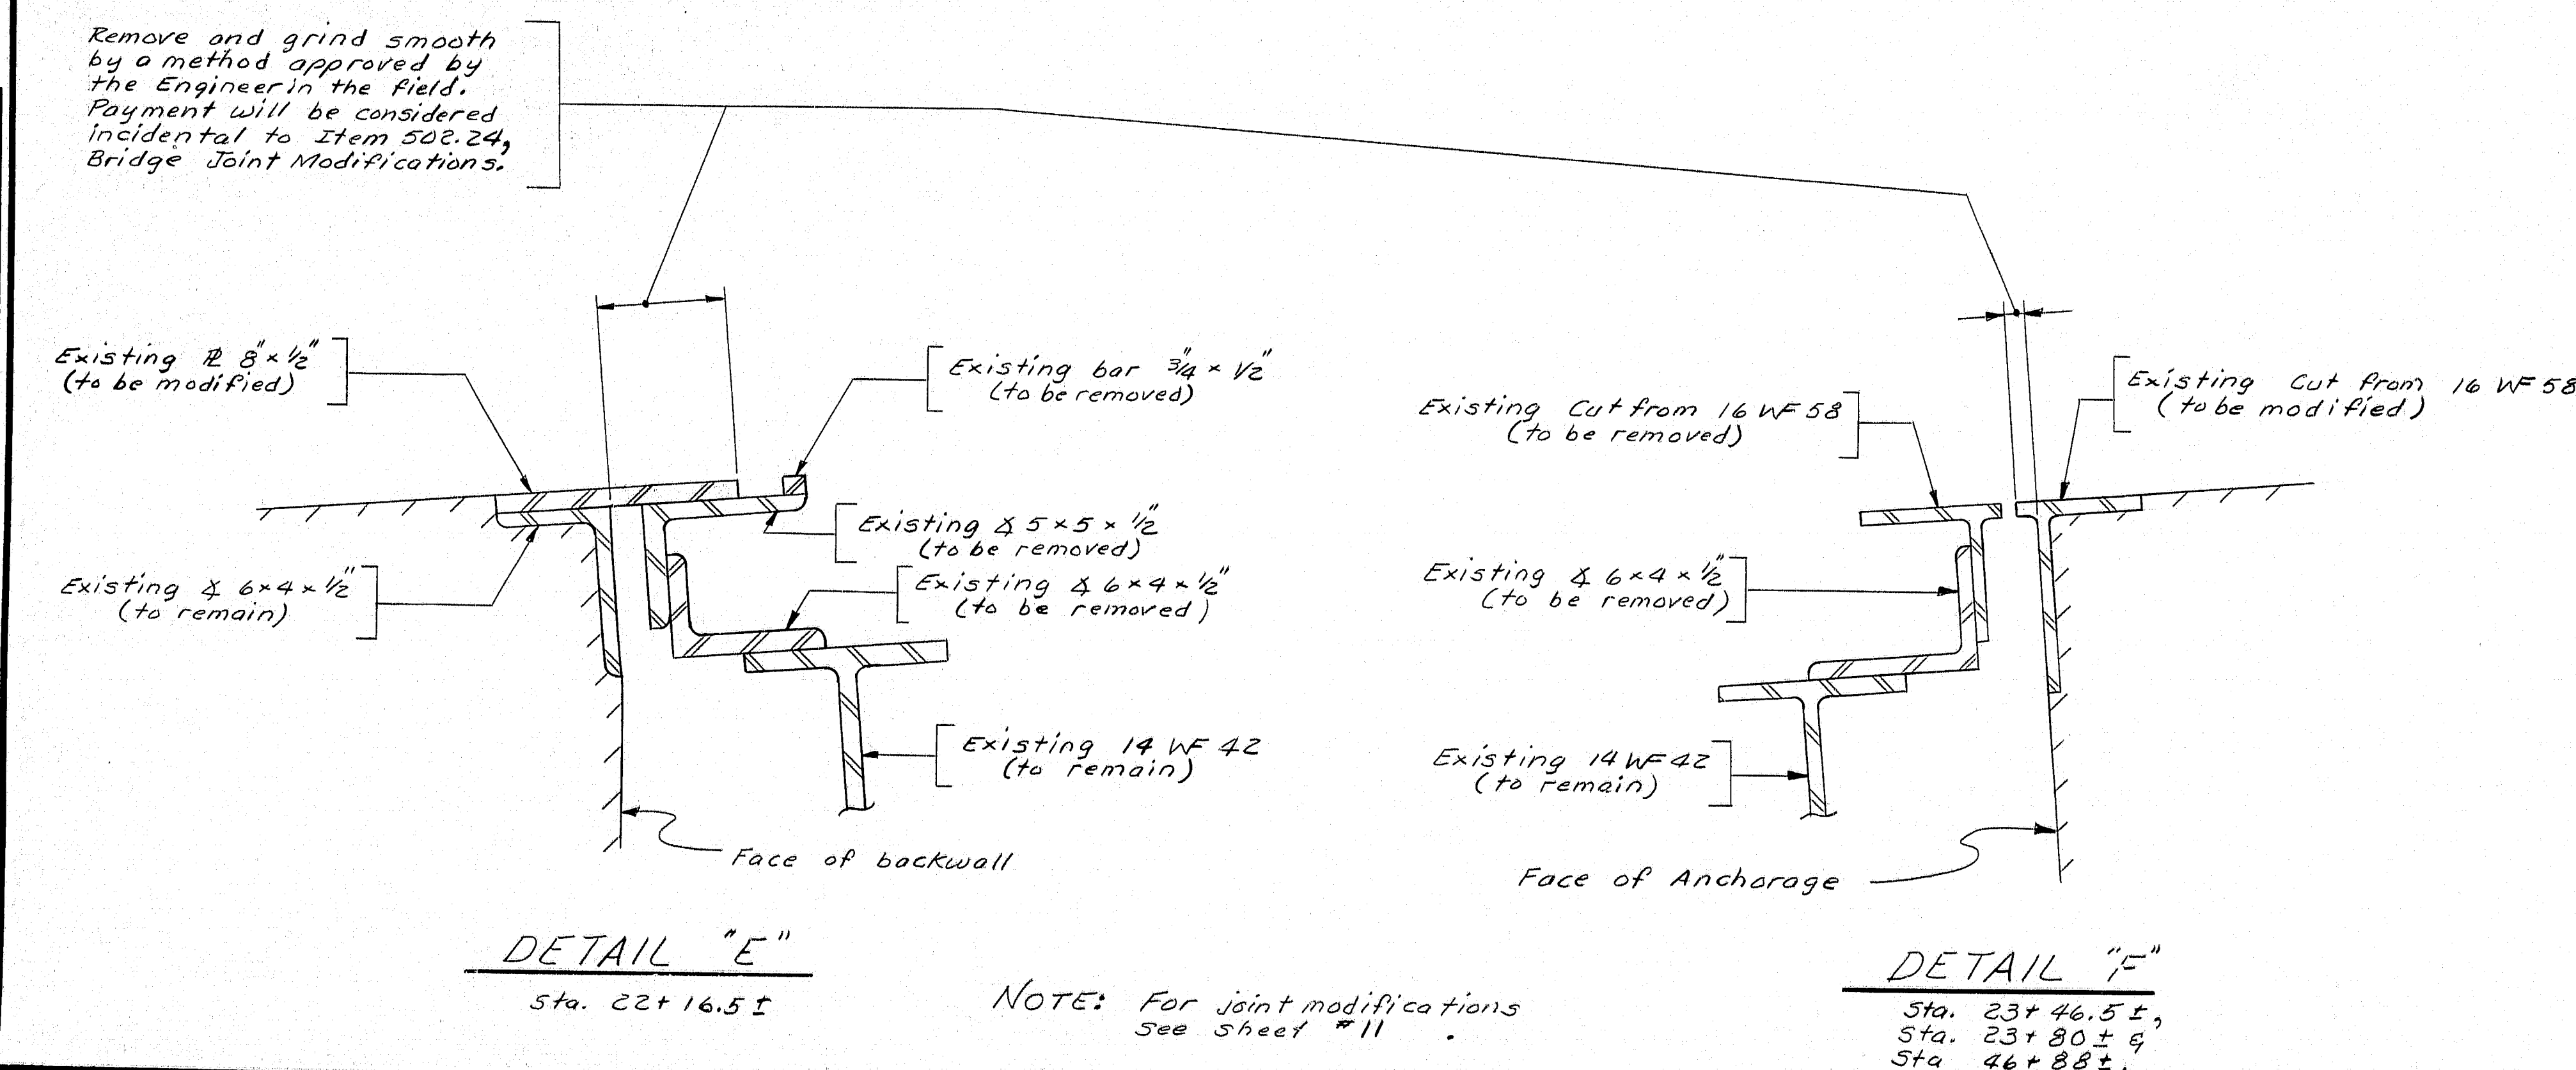 Remove and grind smooth
by a method approved by
the Engineer in the field.
Payment will be considered
incidental to Item 502.24,
Bridge Joint Modifications.
Existing ⅊ 8" x 1/2"
(to be modified)
Existing bar 3/4" x 1/2"
(to be removed)
Existing ∡ 5 x 5 x 1/2"
(to be removed)
Existing ∡ 6 x 4 x 1/2"
(to be removed)
Existing ∡ 6 x 4 x 1/2"
(to remain)
Existing 14 WF 42
(to remain)
Face of backwall
DETAIL "E"
Sta. 22+16.5 ±
NOTE: For joint modifications
see sheet #11 .
Existing Cut from 16 WF 58
(to be removed)
Existing Cut from 16 WF 58
(to be modified)
Existing ∡ 6 x 4 x 1/2"
(to be removed)
Existing 14 WF 42
(to remain)
Face of Anchorage
DETAIL "F"
Sta. 23+46.5 ±,
Sta. 23+80 ± &
Sta 46+88 ±.